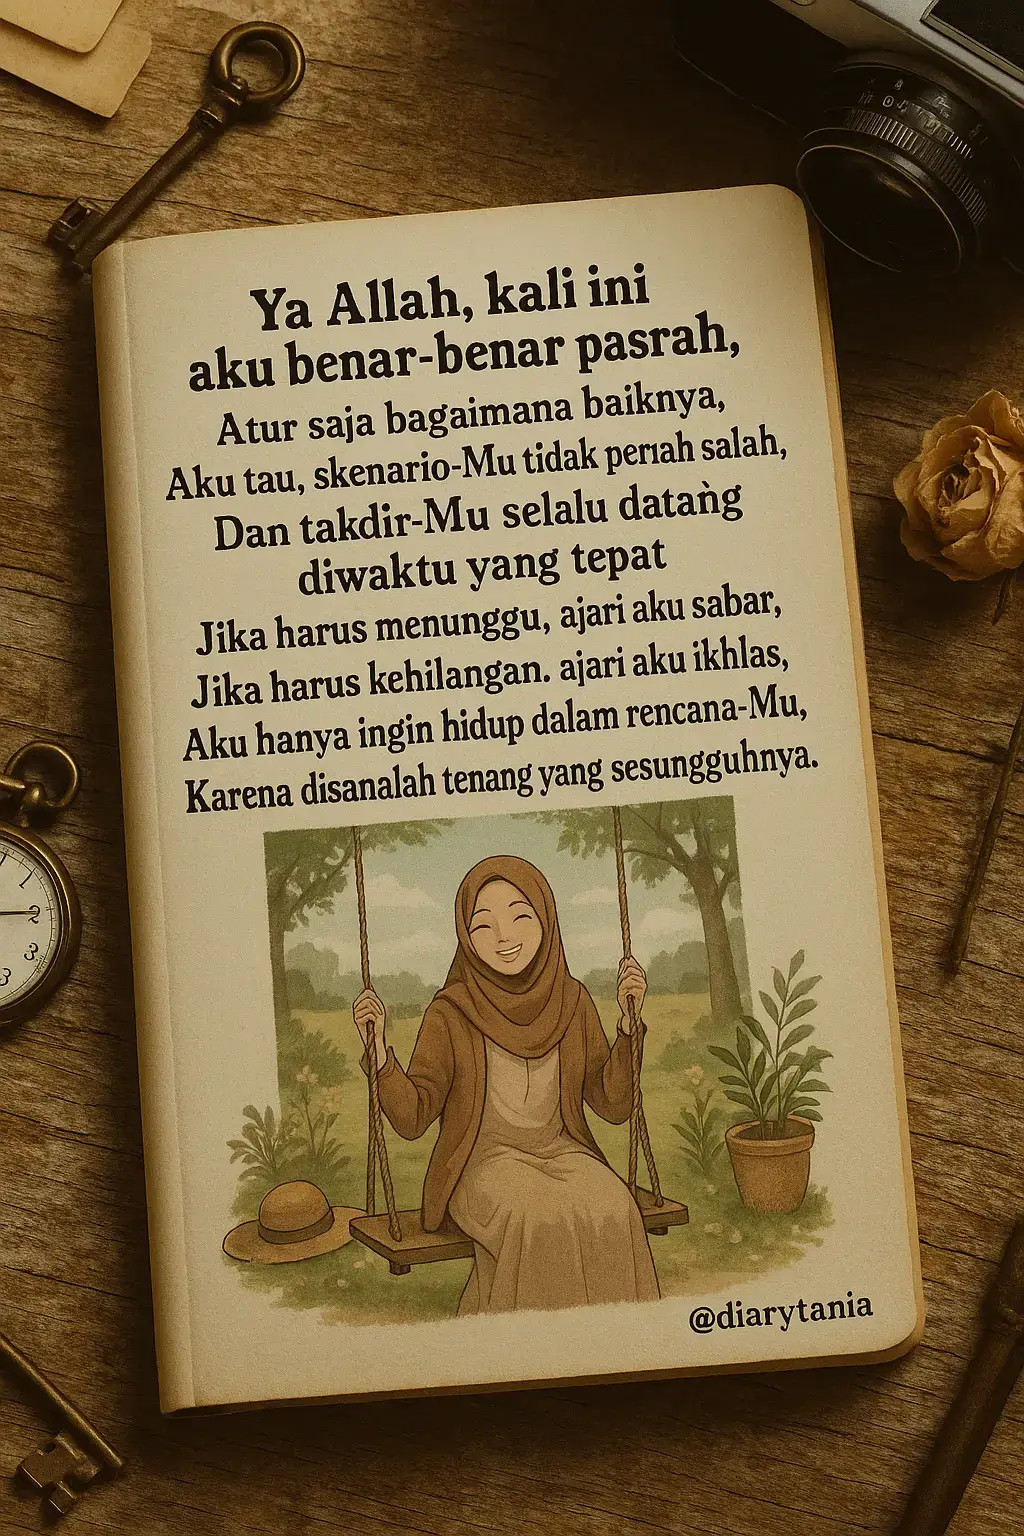 Ya Allah, kali ini
aku benar-benar pasrah,
Atur saja bagaimana baiknya,
Aku tau, skenario-Mu tidak pernah salah,
Dan takdir-Mu selalu datang
diwaktu yang tepat
Jika harus menunggu, ajari aku sabar,
Jika harus kehilangan. ajari aku ikhlas,
Aku hanya ingin hidup dalam rencana-Mu,
Karena disanalah tenang yang sesungguhnya.
@diarytania
1
2
3
3